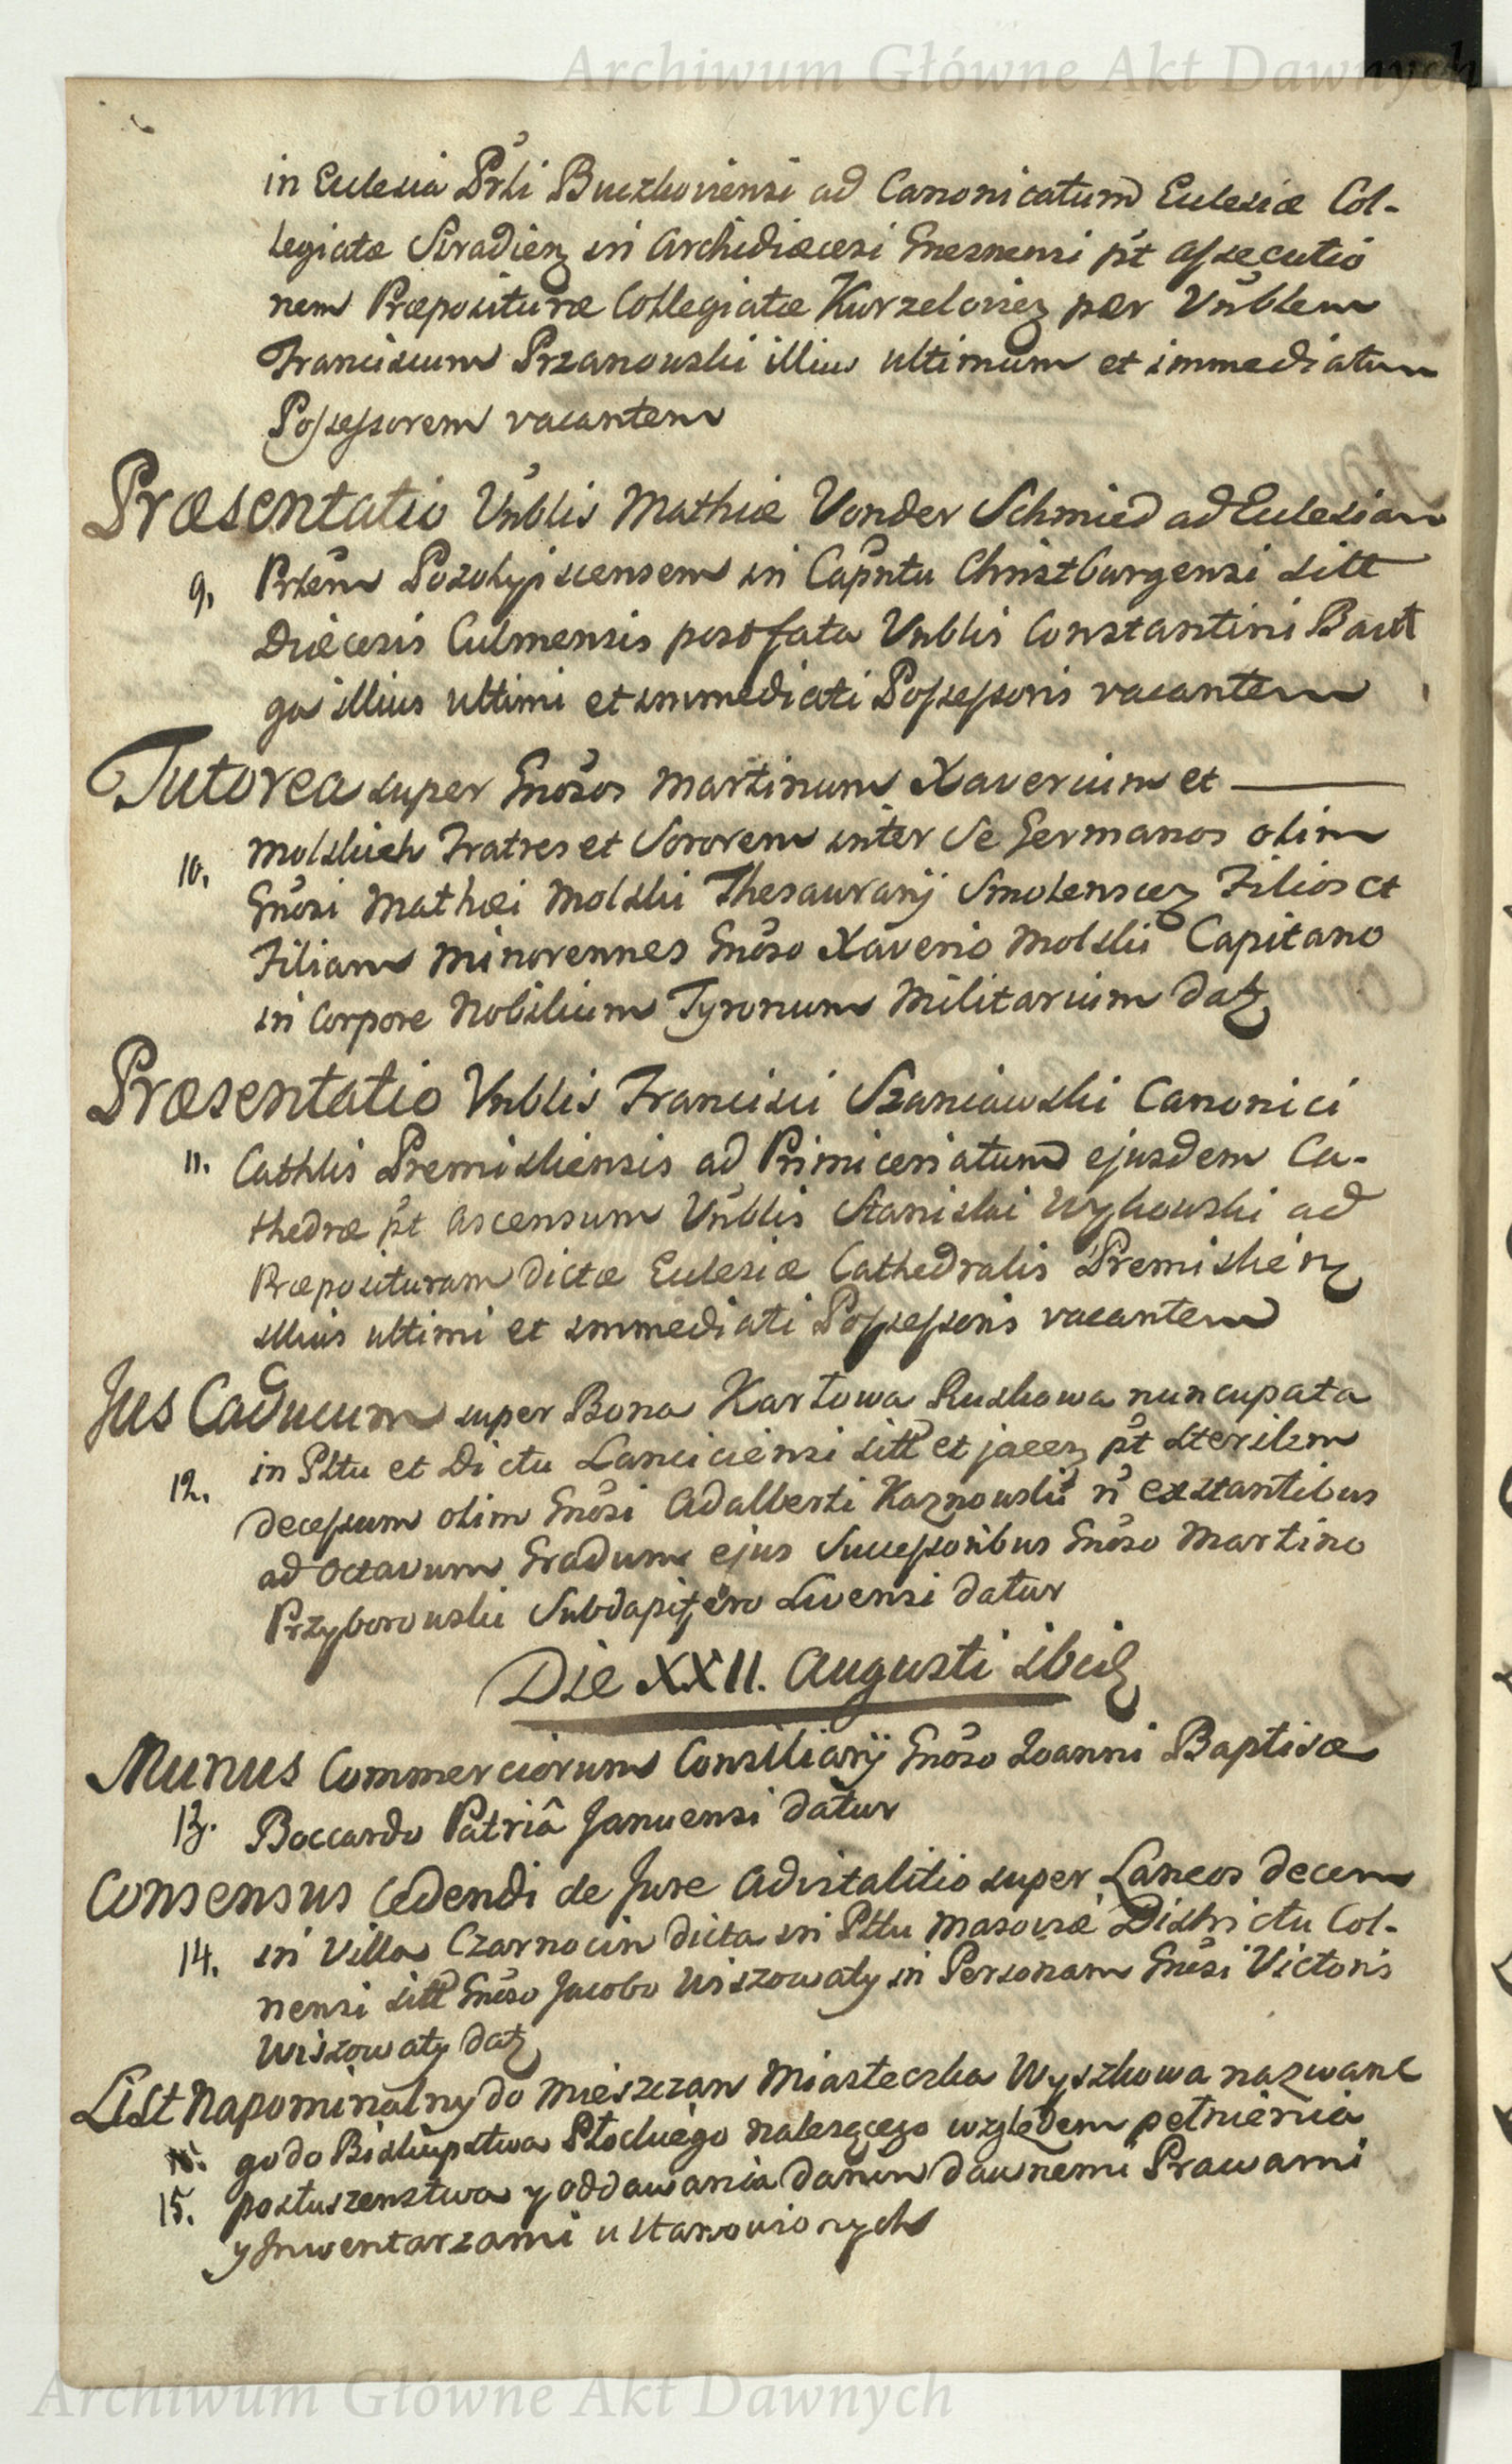 Archiwum Główne Akt Dawnych
in Ecclesia Prli Buczkoviensi ad Canonicatum Ecclesiæ Col-
legiatæ Siradien in Archidiæcesi Gnesnensi pt assecutio
nem Præpositura Collegiatæ Kurzelovien per Vnblem
Franciscum Przanowski illius ultimum et immediatum
Possessorem vacantem
Præsentatio Vnblis Mathiæ Vonder Schmied ad Ecclesiam
9. Prlem Posolypscensem in Capntu Christburgensi sitt
Diæcesis Culmensis post fata Vnblis Constantini Baut
ga illius ultimi et immediati Possessoris vacantem
Tutorea super Gnosos Martinum Xaverium et
10. Molskich Fratres et Sororem inter se Germanos olim
Gnosi Mathæi Molski Thesaurarij Smolenscen Filios et
Filiam minorennes Gnoso Xaverio Molski Capitano
in Corpore Nobilium Tyronum Militarium datz
Præsentatio Vnblis Francisci Szaniawski Canonici
11. Cathlis Premisliensis ad Primiceriatum ejusdem Ca-
thedræ pt ascensum Vnblis Stanislai Wykowski ad
Præposituram dictæ Ecclesiæ Cathedralis Premislien
illius ultimi et immediati Possessoris vacantem
Jus Caducum super Bona Karlowa Ruskowa nuncupata
12. in Pltu et Dictu Lanciciensi sitt et jacen pt sterilem
decessum olim Gnosi Adalberti Kaznowski n exstantibus
ad octavum Gradum ejus Successoribus Gnoso Martino
Przyborowski Subdapifero Livensi datur
Die XXII. Augusti ibid
Munus Commerciorum Consiliarij Gnoso Joanni Baptisæ
13. Boccardo Patriâ Januensi datur
Consensus cedendi de Jure advitalitio super Laneos decem
14. in Villa Czarnocin dicta in Pltu Masoviæ Districtu Col-
nensi sitt Gnoso Jacobo Wiszowaty in Personam Gnosi Victoris
Wiszowaty datz
List Napominalny do Mieszczan Miasteczka Wyszkowa nazwane
go do Biskupstwa Płockiego należącego względem pełnienia
15. posłuszenstwa y oddawania danin dawnemi Prawami
y Jnwentarzami ustanowionych
Archiwum Główne Akt Dawnych